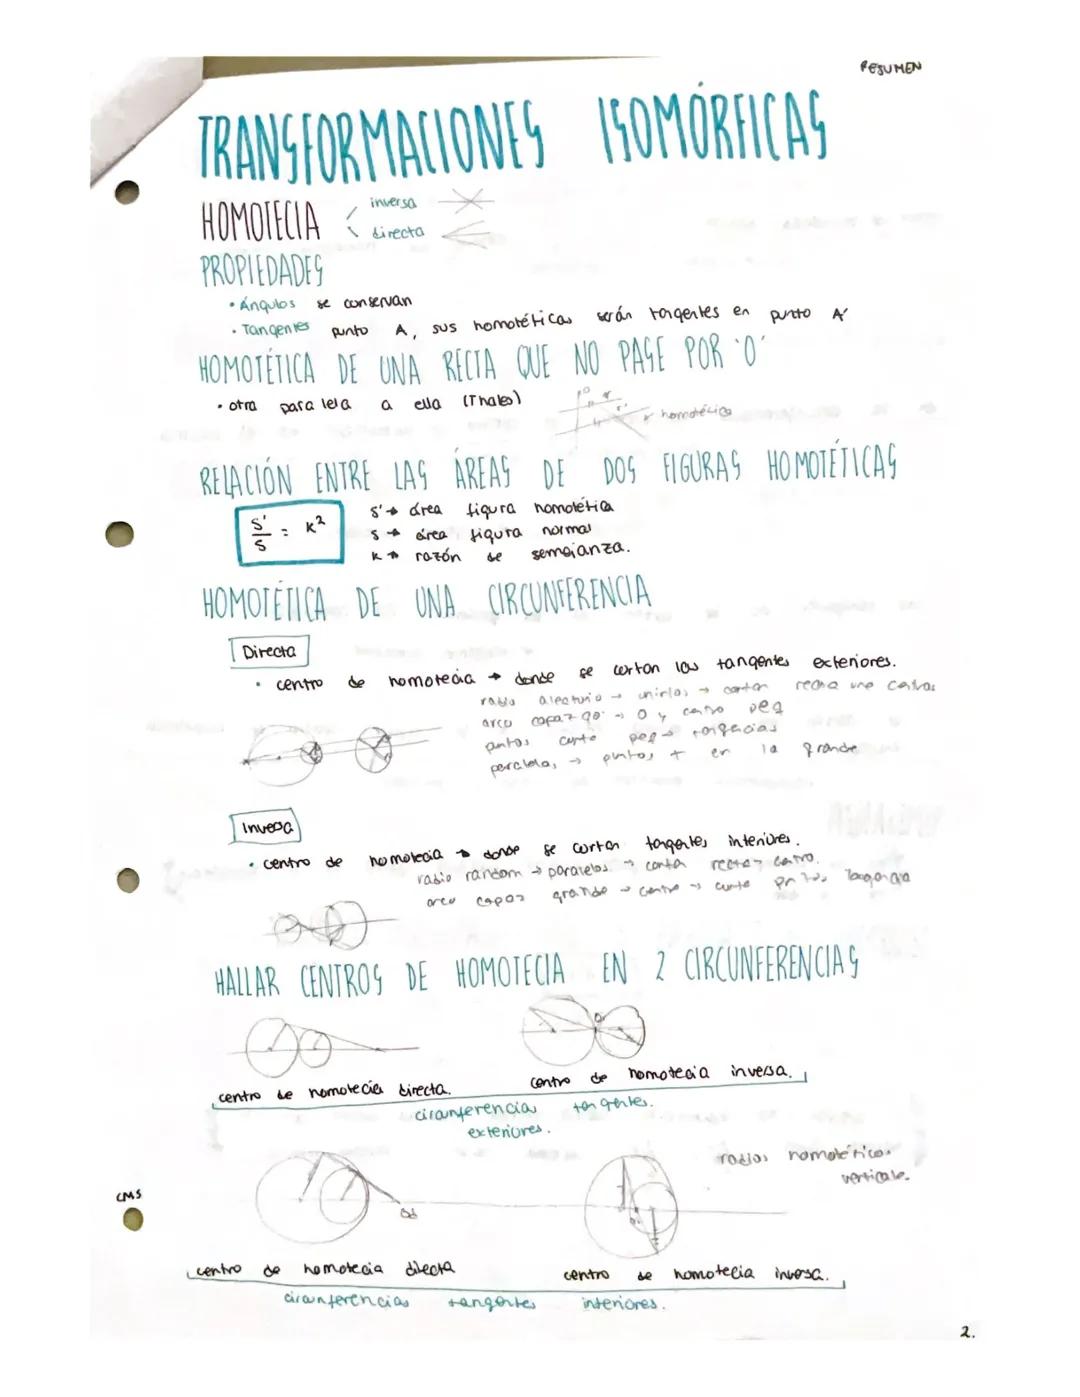 RESUMEN
TRANSFORMACIONES ISOMÓRFICAS
HOMOTECIA
inversa
directa
PROPIEDADES
• Ángulos se conservan
• Tangentes punto A, sus homotéticas serán tangentes en punto A'
HOMOTÉTICA DE UNA RECTA QUE NO PASE POR 'O'
• otra paralela a ella (Thales)
r homotécica
RELACIÓN ENTRE LAS ÁREAS DE DOS FIGURAS HOMOTÉTICAS
S'/S = K²
S' → área figura homotética
S → área figura normal
K → razón de semejanza.
HOMOTÉTICA DE UNA CIRCUNFERENCIA
Directa
• centro de homotecia → donde se cortan las tangentes exteriores.
radio aleatorio → unirlos → cortan recta une centros
arco capaz 90° → O y centro peq
puntos corte peq → tangencias
paralelas → puntos + en la grande
Inversa
• centro de homotecia → donde se cortan tangentes interiores.
radio random → paralelos → cortan recta centro.
arco capaz grande → centro → corte tangencia
HALLAR CENTROS DE HOMOTECIA EN 2 CIRCUNFERENCIAS
centro de homotecia directa.
centro de homotecia inversa.
circunferencia tangentes.
exteriores.
radios homotéticos
verticale.
CMS
Od
centro de homotecia directa
centro de homotecia inversa.
circunferencias tangentes interiores.
2.